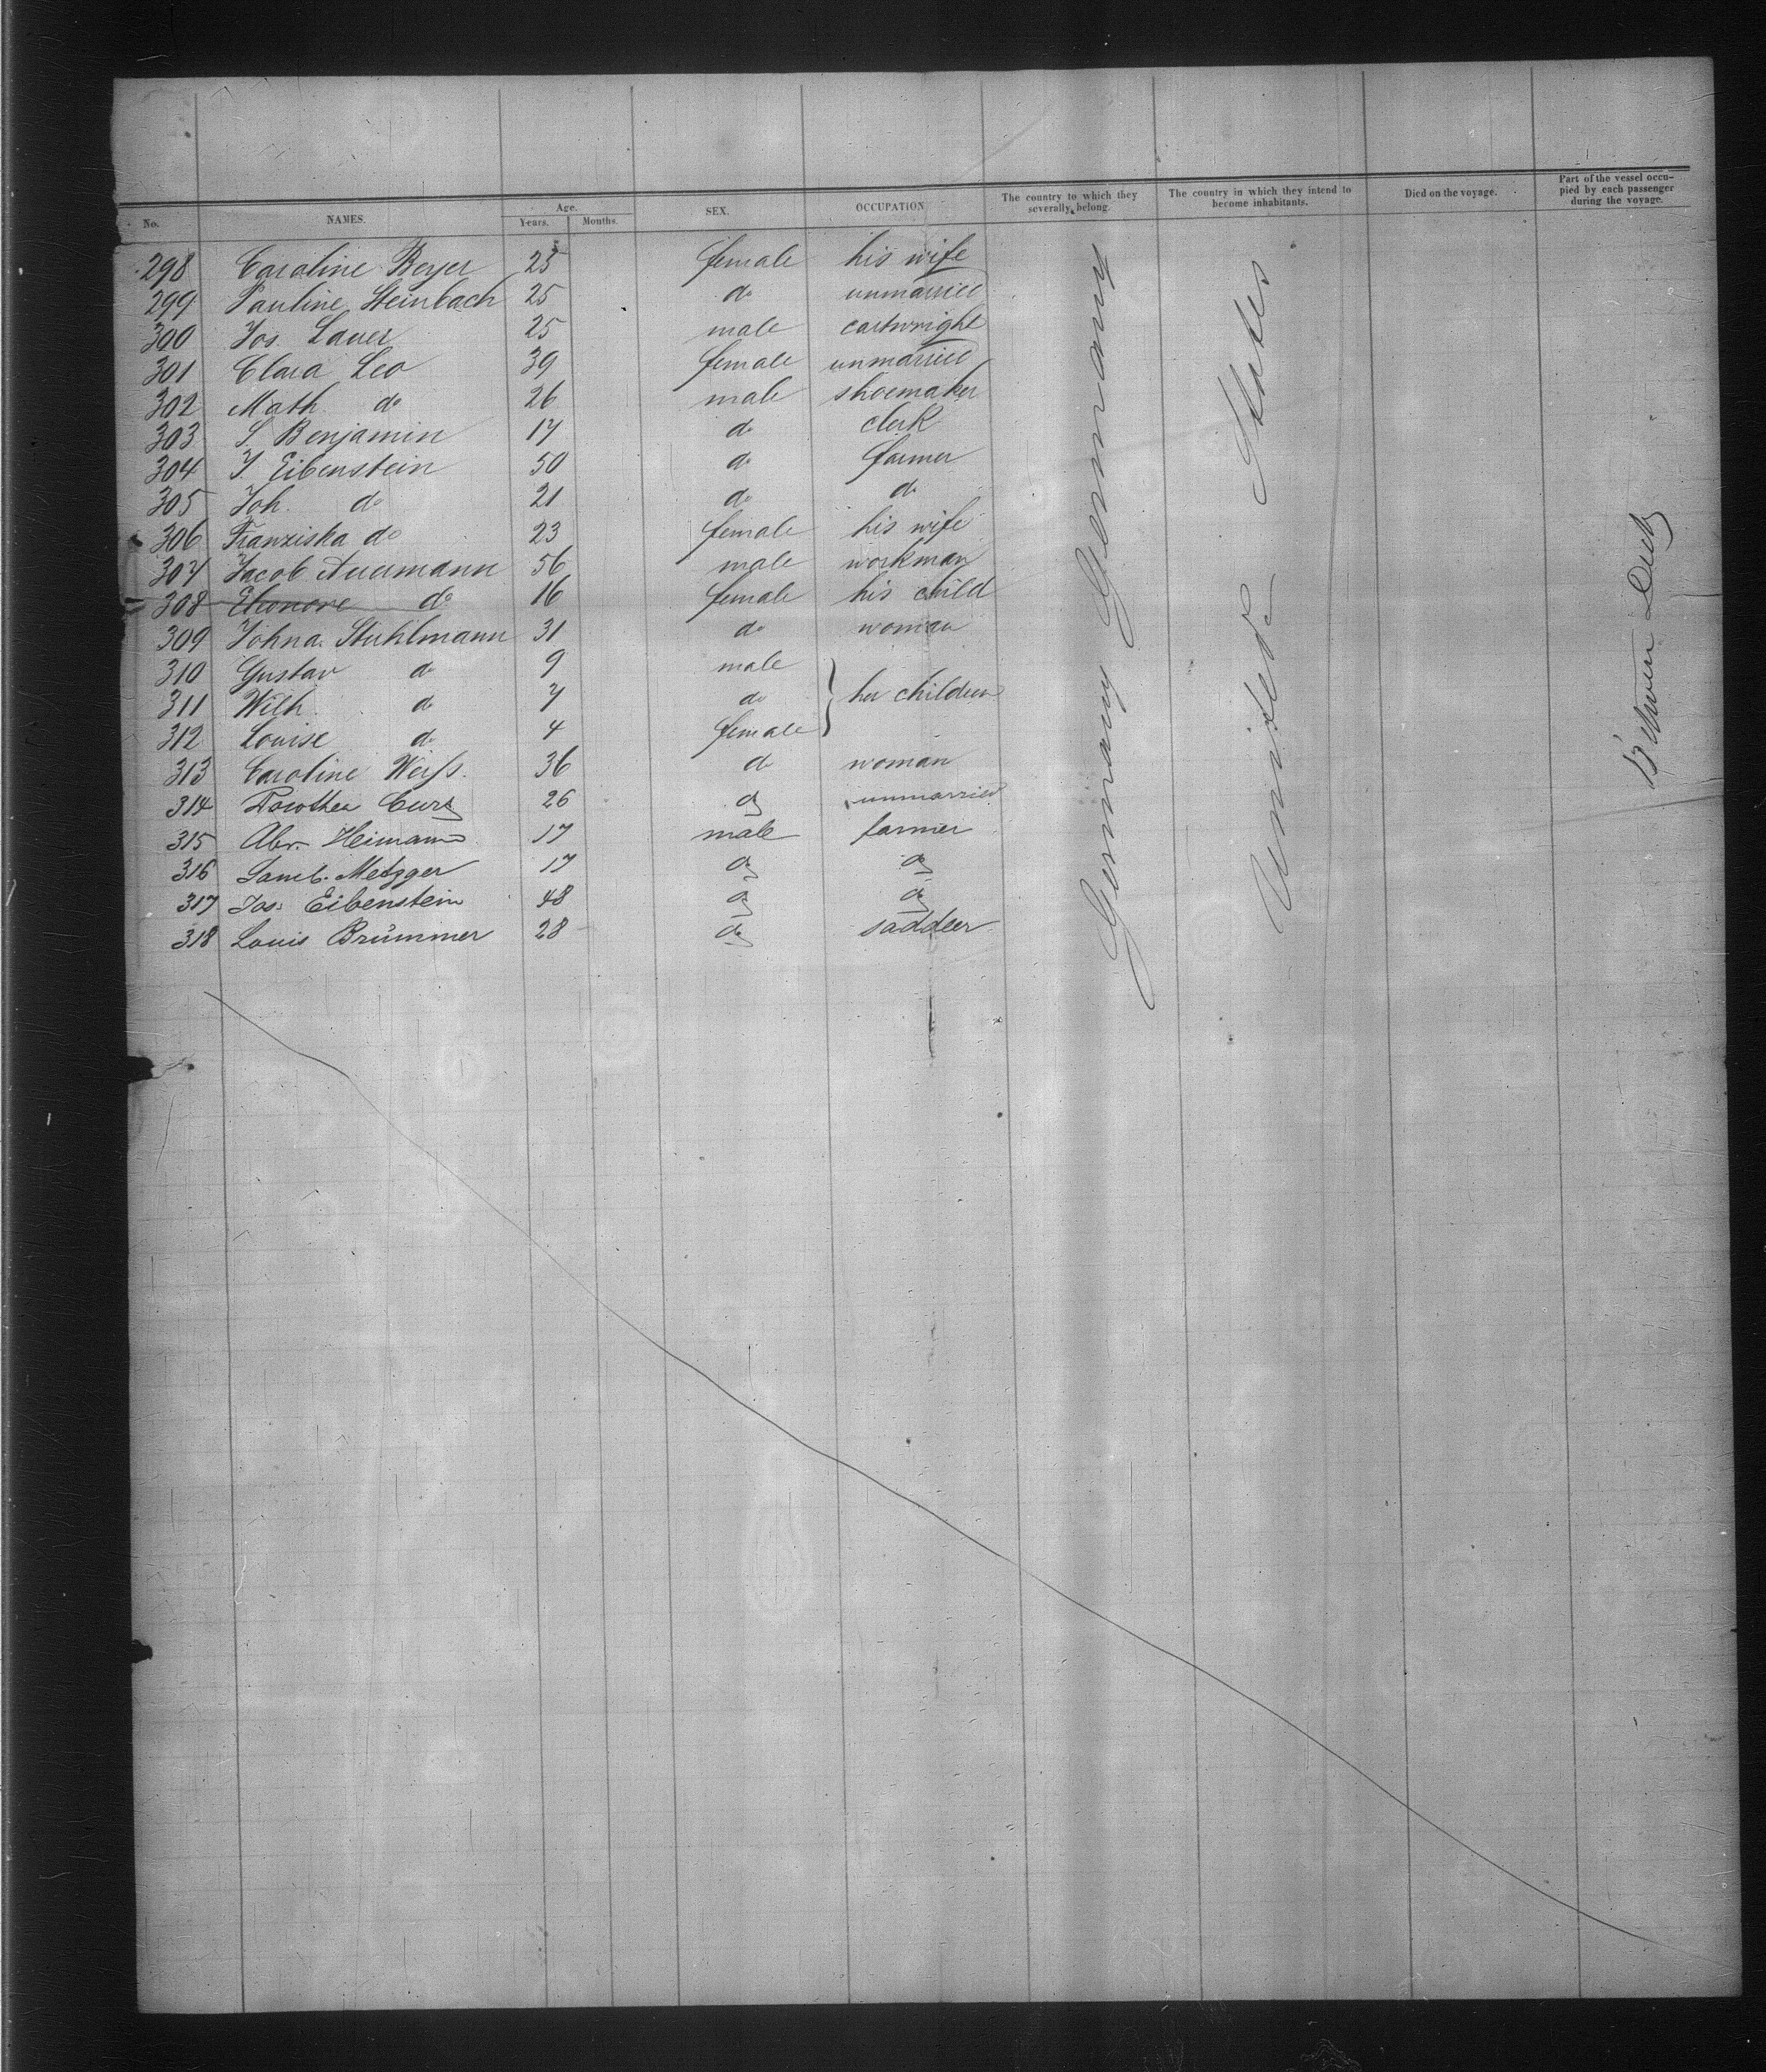 No. NAMES. Age. Years. Months. SEX. OCCUPATION The country to which they severally belong. The country in which they intend to become inhabitants. Died on the voyage. Part of the vessel occupied by each passenger during the voyage.
298 Caroline Beyer 25 female his wife
299 Pauline Steinbach 25 do unmarried
300 Jos. Lauer 25 male cartwright
301 Clara Leo 39 female unmarried
302 Math do 26 male shoemaker
303 S. Benjamin 17 do clerk
304 J. Eibenstein 50 do farmer
305 Joh. do 21 do do
306 Franziska do 23 female his wife
307 Jacob Auumann 56 male workman
308 Eleonore do 16 female his child
309 Johna. Stuhlmann 31 do woman
310 Gustav do 9 male
311 Wilh. do 7 do her children
312 Louise do 4 female
313 Caroline Weiss. 36 do woman
314 Dorothea Curz 26 do unmarried
315 Abr. Heimann 17 male farmer
316 Lamb. Metzger 17 do do
317 Jos. Eibenstein 48 do do
318 Louis Brümmer 28 do saddler
Germany Germany
United States
Between Deck